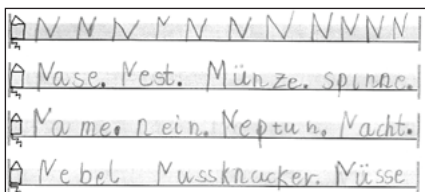 N N N N N N N N N N N
Nase. Nest. Münze. spinne.
Name. nein. Neptun. Nacht.
Nebel Nussknacker. Nüsse